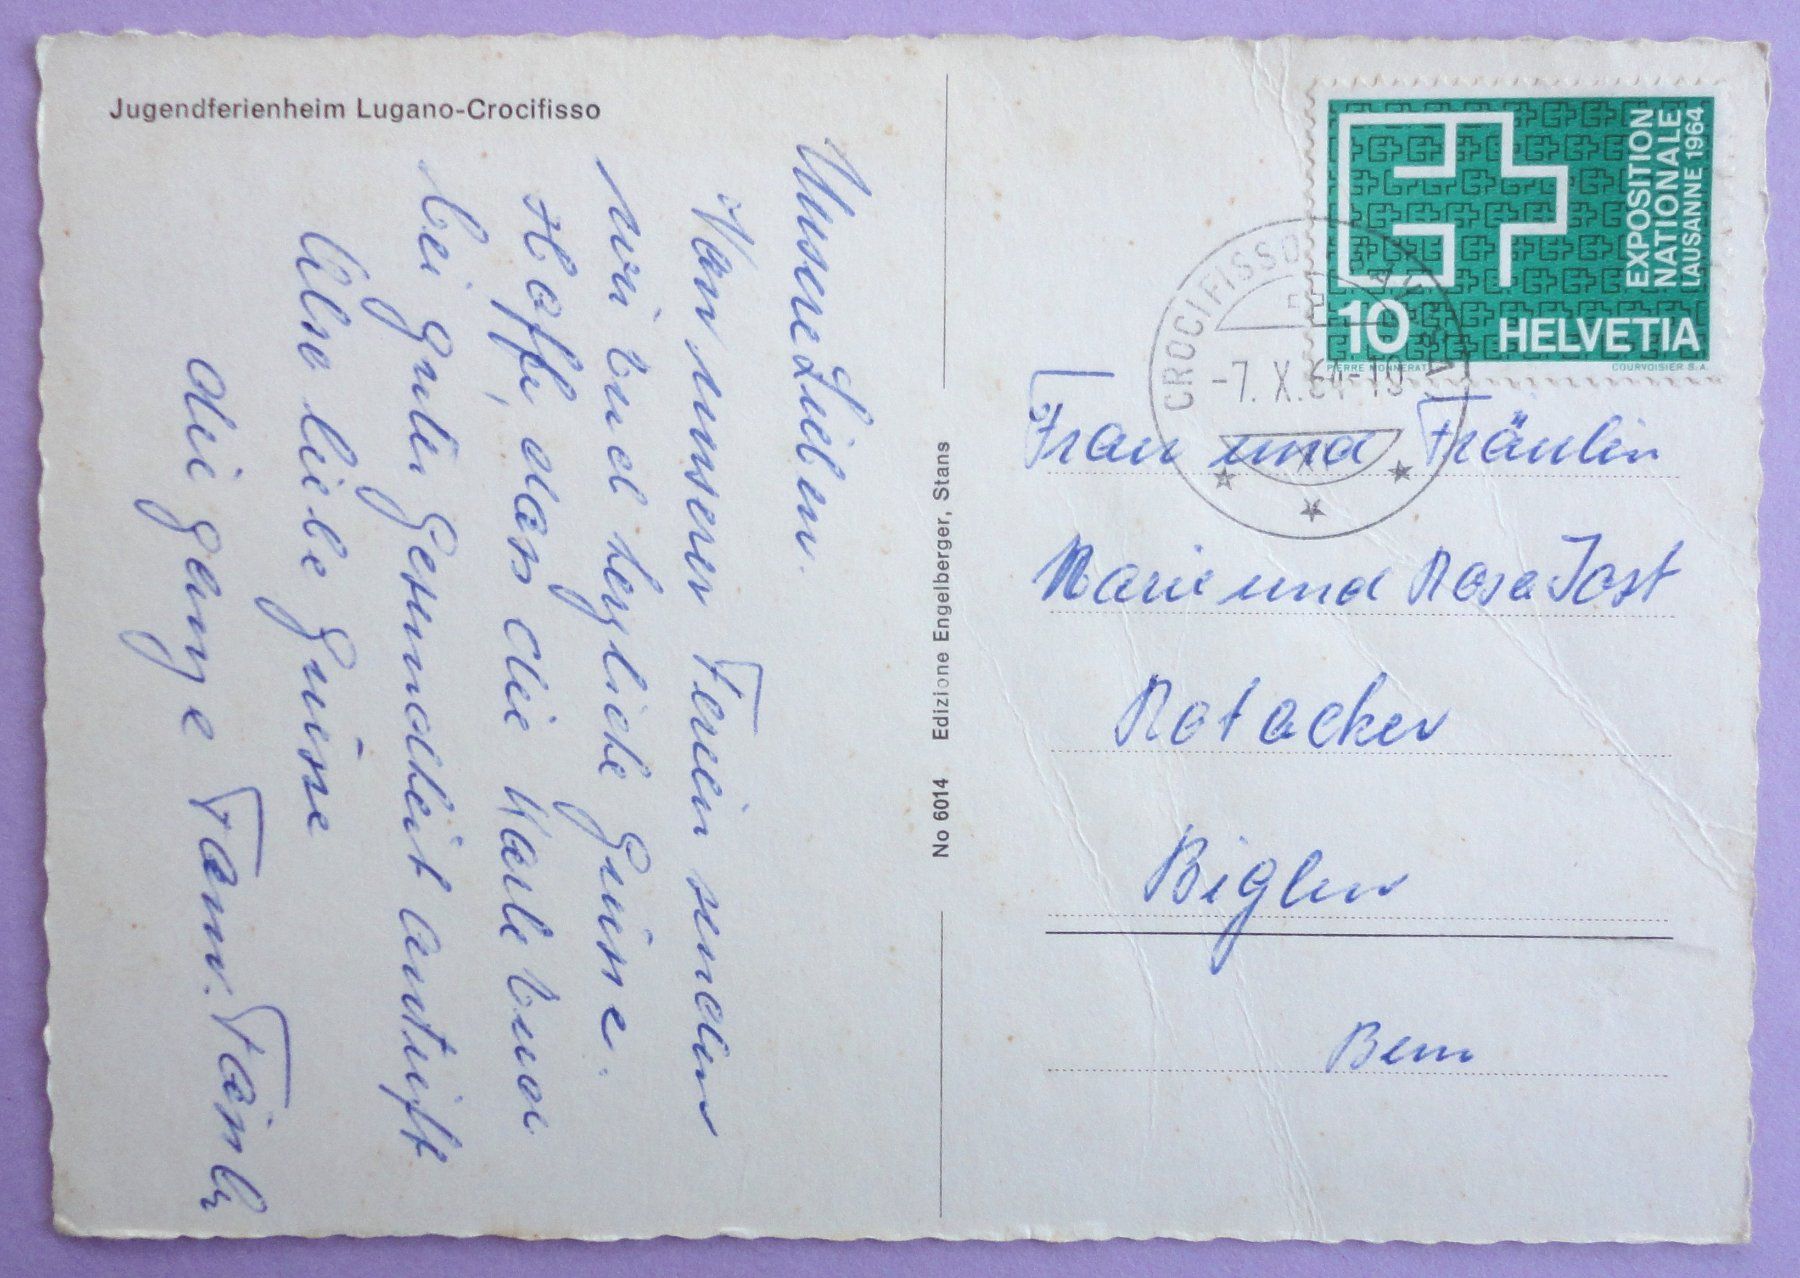 Jugendferienheim Lugano-Crocifisso
Unsere Lieben.
Von unseren Ferien senden
wir Euch herzliche Grüsse.
Hoffe, dass die Karte Euch
bei guter Gesundheit antrifft
Also liebe Grüsse
die ganze Fam.
No 6014 Edizione Engelberger, Stans
EXPOSITION
NATIONALE
LAUSANNE 1964
10 HELVETIA
PIERRE MONNERAT COURVOISIER S.A.
CROCIFISSO
-7.X.64-10
Frau und Fräulein
Marie und Rosa Jost
Rotacker
Biglen
Bern